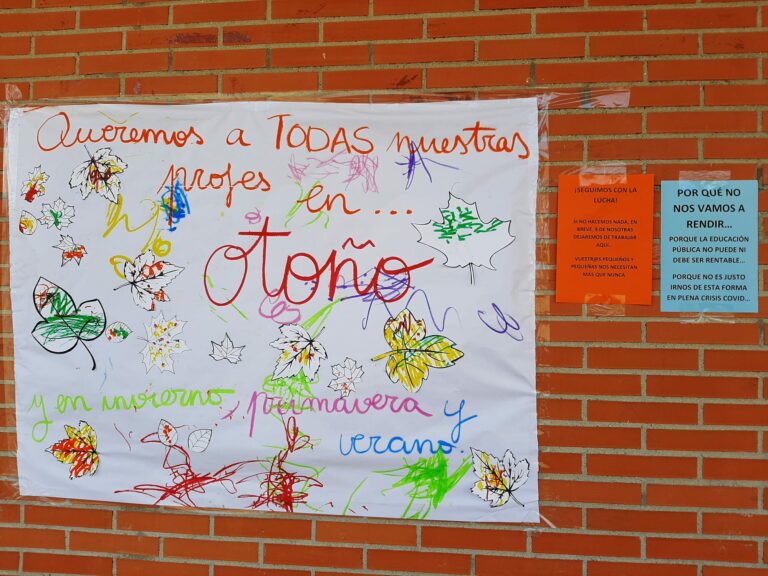 Queremos a TODAS nuestras
profes en...
otoño
y en invierno, primavera y
verano.
¡SEGUIMOS CON LA
LUCHA!
SI NO HACEMOS NADA, EN
BREVE, 9 DE NOSOTRAS
DEJAREMOS DE TRABAJAR
AQUÍ..
VUESTREJS PEQUEÑOS Y
PEQUEÑAS NOS NECESITAN
MÁS QUE NUNCA
POR QUÉ NO
NOS VAMOS A
RENDIR...
PORQUE LA EDUCACIÓN
PÚBLICA NO PUEDE NI
DEBE SER RENTABLE...
PORQUE NO ES JUSTO
IRNOS DE ESTA FORMA
EN PLENA CRISIS COVID...